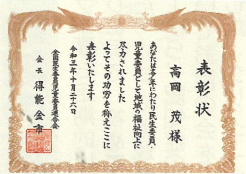 表彰状
高岡 茂様
あなたは多年にわたり民生委員・
児童委員として地域の福祉向上に
尽力されました
よってその功労を称えここに
表彰いたします
令和三年十月二十六日
全国民生委員児童委員連合会
会長 得能金市